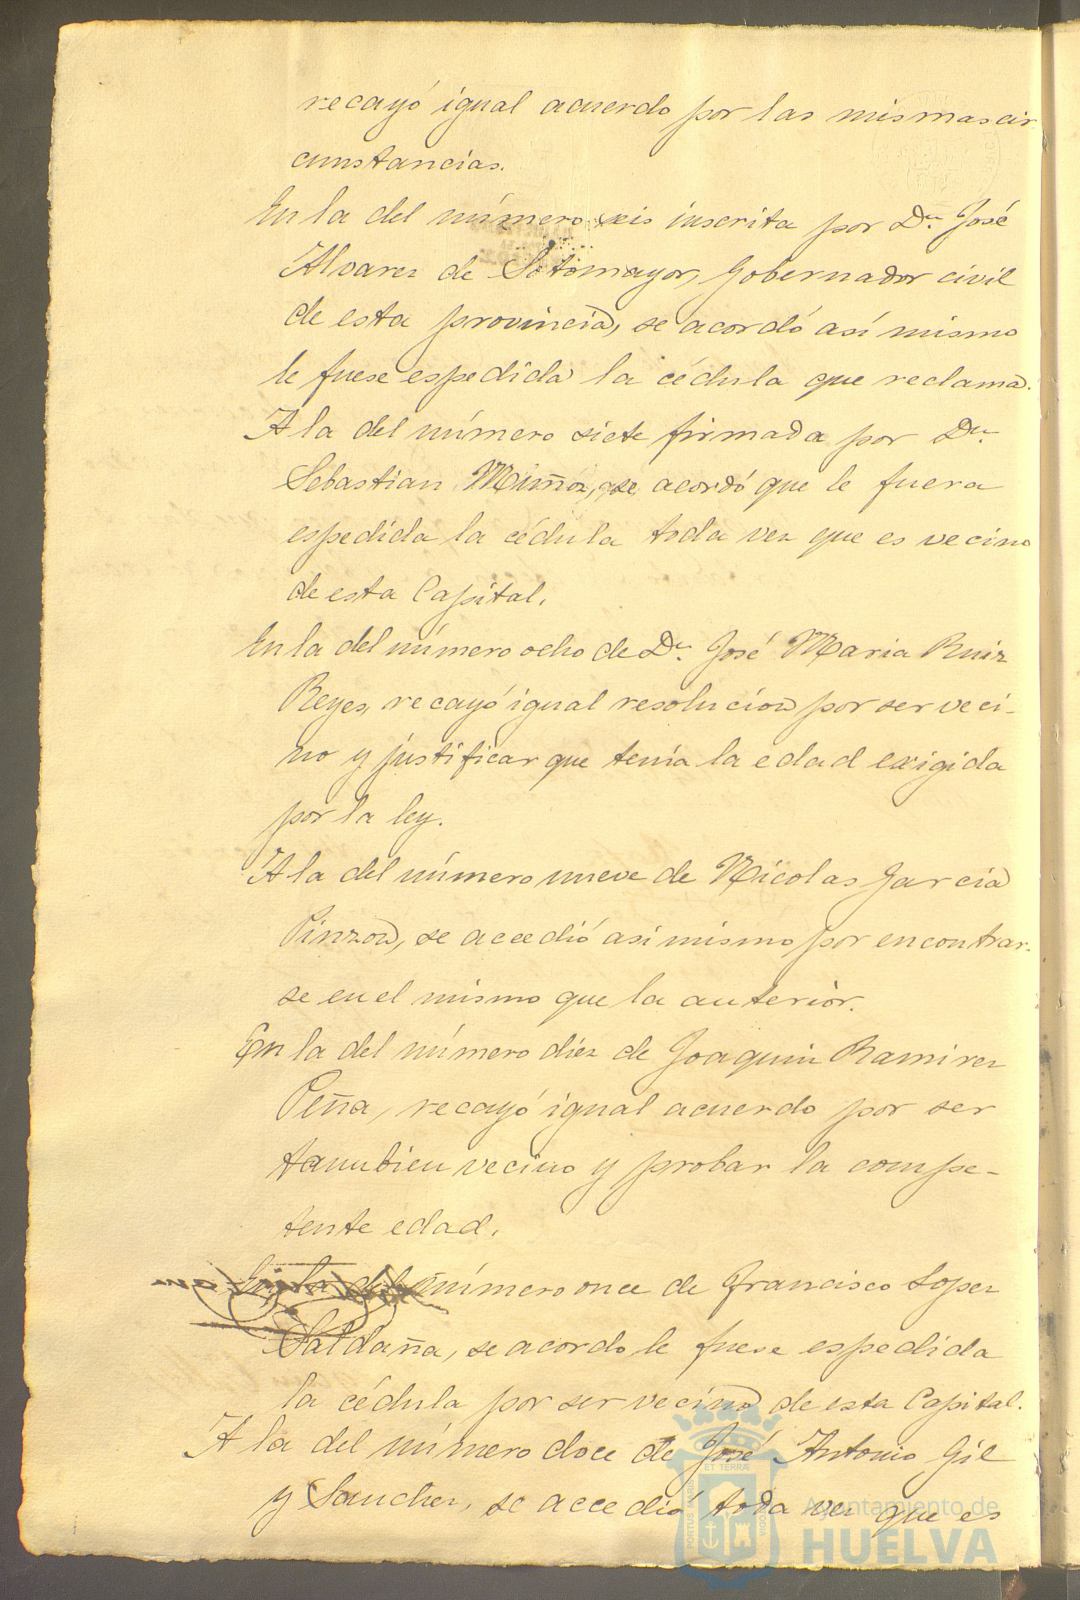 recayó igual acuerdo por las mismas cir
cunstancias.
En la del número seis inscrita por Dn. José
Alvarez de Sotomayor, Gobernador civil
de esta provincia, se acordó así mismo
le fuese espedida la cédula que reclama.
A la del número siete firmada por Dn.
Sebastian Muñoz, se acordó que le fuera
espedida la cédula toda vez que es vecino
de esta Capital.
En la del número ocho de Dn. José Maria Ruiz
Reyes, recayó igual resolucion por ser veci-
no y justificar que tenía la edad exigida
por la ley.
A la del número nueve de Nicolas Garcia
Pinzon, se accedió así mismo por encontrar-
se en el mismo que la anterior.
En la del número diez de Joaquin Ramirez
Peña, recayó igual acuerdo por ser
tambien vecino y probar la compe-
tente edad.
En la del número once de Francisco Lopez
Saldaña, se acordo le fuese espedida
la cédula por ser vecino de esta Capital.
A la del número doce de José Antonio Gil
y Sanchez, se accedió toda vez que es
PORTUS MARIS
ET TERRAE
CUSTODIA
Ayuntamiento de
HUELVA